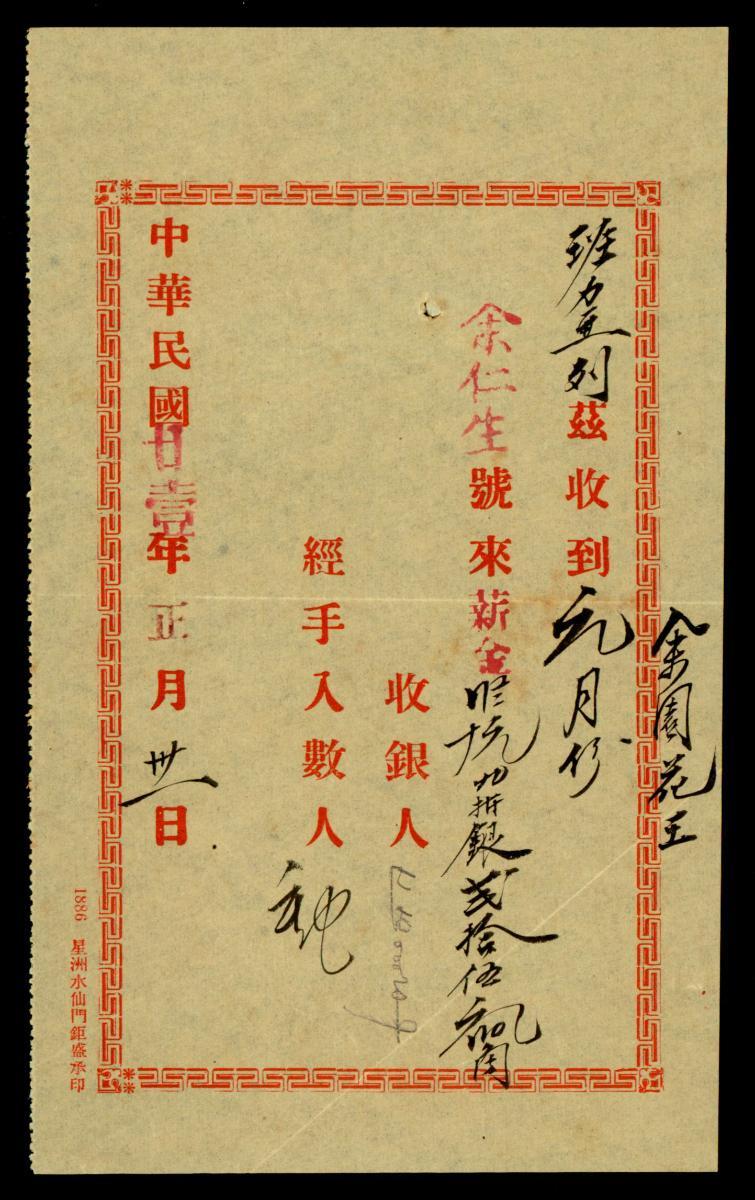 余園花王
班力亞列茲收到元月份
余仁生號來薪金 九折銀貳拾伍
收銀人
經手入數人
中華民國廿壹年正月卅一日
1886 星洲水仙門鉅盛承印